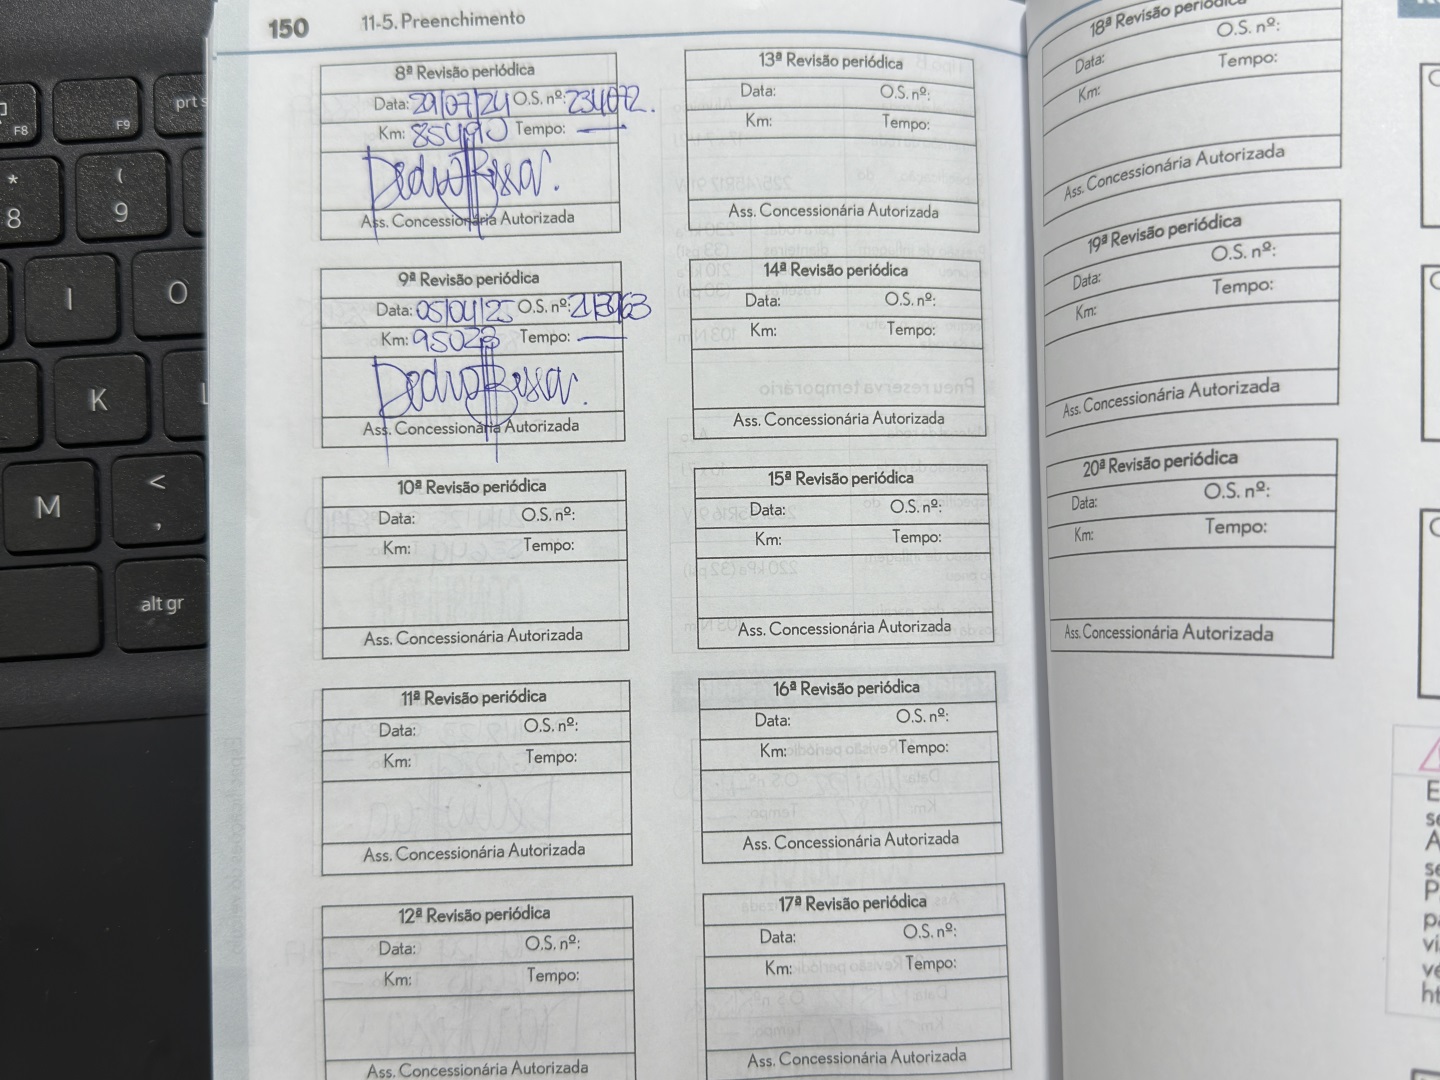 150 11-5. Preenchimento
8ª Revisão periódica
Data: 29/07/24 O.S. nº: 234072.
Km: 85490 Tempo: —
Ass. Concessionária Autorizada
9ª Revisão periódica
Data: 05/04/25 O.S. nº:
Km: 95028 Tempo: —
Ass. Concessionária Autorizada
10ª Revisão periódica
Data: O.S. nº:
Km: Tempo:
Ass. Concessionária Autorizada
11ª Revisão periódica
Data: O.S. nº:
Km: Tempo:
Ass. Concessionária Autorizada
12ª Revisão periódica
Data: O.S. nº:
Km: Tempo:
Ass. Concessionária Autorizada
13ª Revisão periódica
Data: O.S. nº:
Km: Tempo:
Ass. Concessionária Autorizada
14ª Revisão periódica
Data: O.S. nº:
Km: Tempo:
Ass. Concessionária Autorizada
15ª Revisão periódica
Data: O.S. nº:
Km: Tempo:
Ass. Concessionária Autorizada
16ª Revisão periódica
Data: O.S. nº:
Km: Tempo:
Ass. Concessionária Autorizada
17ª Revisão periódica
Data: O.S. nº:
Km: Tempo:
Ass. Concessionária Autorizada
18ª Revisão periódica
Data: O.S. nº:
Km: Tempo:
Ass. Concessionária Autorizada
19ª Revisão periódica
Data: O.S. nº:
Km: Tempo:
Ass. Concessionária Autorizada
20ª Revisão periódica
Data: O.S. nº:
Km: Tempo:
Ass. Concessionária Autorizada
F8
F9
prt s
* 8
( 9
I
O
K
L
M
< ,
alt gr